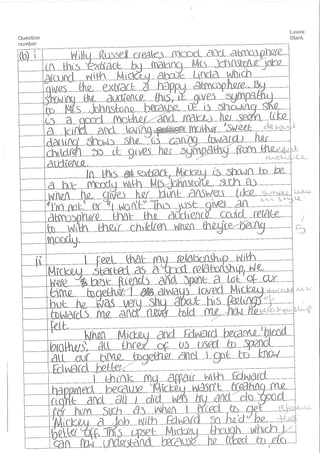 Leave
blank
Question
number
(b) i Willy Russell creates mood and atmosphere
in this extract by making Mrs Johnstone joke
around with Mickey about Linda which
gives the extract a happy atmosphere. By
showing the audience this, it gives sympathy
to Mrs Johnstone because it is showing she
is a good mother and makes her seem like
a kind and loving mother. 'Sweet
darling' shows she is caring towards her
children so it gives her sympathy from the
audience.
In this extract, Mickey is shown to be
a bit moody with Mrs Johnstone, such as
when he gives her blunt answers like
"I'm not" or "I won't". This just gives an
atmosphere that the audience could relate
to with their children when they're being
moody.
5
ii I feel that my relationship with
Mickey started as a good relationship. We
were best friends and spent a lot of our
time together. I always loved Mickey
but he was very shy about his feelings
towards me and never told me how he
felt.
When Mickey and Edward became 'blood
brothers', all three of us used to spend
all our time together and I got to know
Edward better.
I think my affair with Edward
happened because Mickey wasn't treating me
right and all I did was try and do good
for him such as when I tried to get
Mickey a job with Edward so he'd be
better off. This upset Mickey though which I
can now understand because he liked to do